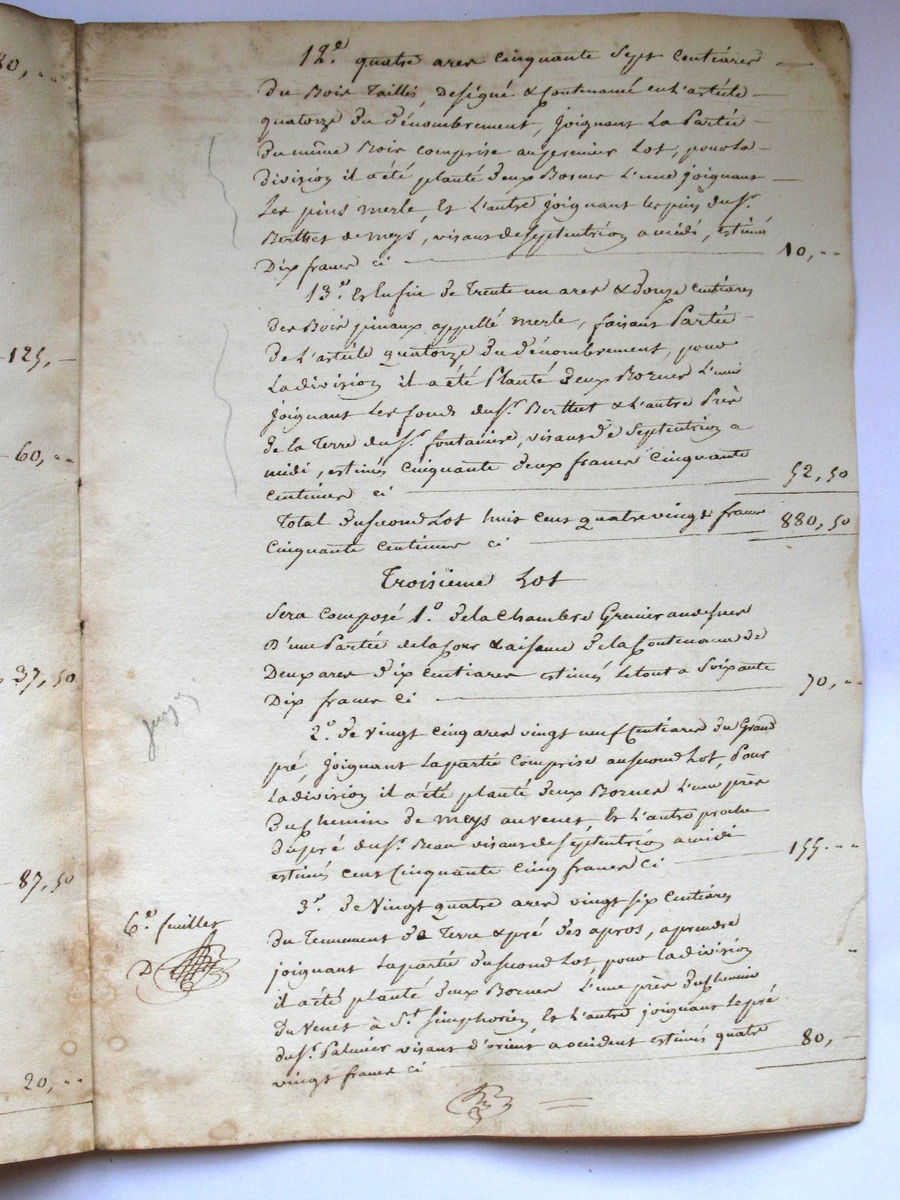 80, ..
125, -
60, ..
37, 50
87, 50
20, ..
12.º quatre ares cinquante sept centiares
du Bois Taillis, designé & contenancé en l'article
quatorze du dénombrement, joignant la Partie
du même Bois comprise au premier Lot, pour la
division il a été planté deux Bornes l'une joignant
Les pins merle, Et l'autre joignant les pins du Sr.
Berthet de meys, visant de septentrion a midi, estimés
Dix francs ci 10, ..
13.º et Enfin de Trente un ares & douze centiares
des Bois pinaux appellé merle, faisant Partie
de l'article quatorze du dénombrement, pour
La division il a été Planté deux Bornes l'une
joignant Les fonds du Sr. Berthet & l'autre Près
de la Terre du Sr. fontanière, visant de Septentrion a
midi, estimés cinquante deux francs cinquante
centimes ci 52, 50
Total du second Lot huit cent quatre vingt francs
cinquante centimes ci 880, 50
Troisieme Lot
Sera composé 1.º de la Chambre Grenier au dessus
D'une Partie de la Cour & aisance de la Contenance de
Deux ares dix centiares estimés Le tout a Soixante
Dix francs ci 70, ..
2.º de vingt cinq ares vingt neuf Centiares du Grand
pré, joignant La partie comprise au second Lot, Pour
La division il a été planté deux Bornes l'une près
du chemin de meys au venet, Et l'autre proche
du pré du Sr. Beau visant de Septentrion a midi
estimés cent Cinquante cinq francs ci 155. ..
3.º de Vingt quatre ares vingt six Centiares
du Tennement de Terre & pré des apros, a prendre
joignant La partie du second Lot, pour la division
il a été planté deux Bornes l'une près du chemin
du Venet à St. Simphorien Et l'autre joignant Le pré
du Sr. Palmier visant d'orient a occident estimés quatre
vingt francs ci 80, -
6.e feuillet
D